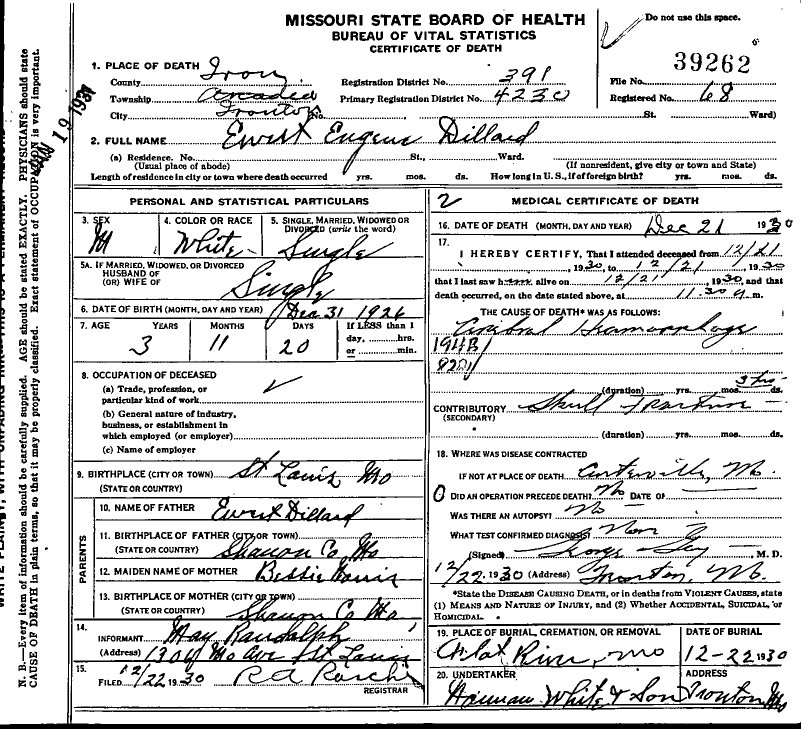 MISSOURI STATE BOARD OF HEALTH
BUREAU OF VITAL STATISTICS
CERTIFICATE OF DEATH
Do not use this space.
39262
1. PLACE OF DEATH
County Iron Registration District No. 391 File No.
Township Arcadia Primary Registration District No. 4230 Registered No. 68
City Ironton No. St. Ward)
2. FULL NAME Ewert Eugene Dillard
(a) Residence. No. St., Ward.
(Usual place of abode) (If nonresident, give city or town and State)
Length of residence in city or town where death occurred yrs. mos. ds. How long in U. S., if of foreign birth? yrs. mos. ds.
PERSONAL AND STATISTICAL PARTICULARS
3. SEX M
4. COLOR OR RACE White
5. SINGLE, MARRIED, WIDOWED OR DIVORCED (write the word) Single
5A. IF MARRIED, WIDOWED, OR DIVORCED
HUSBAND OF
(OR) WIFE OF Single
6. DATE OF BIRTH (MONTH, DAY AND YEAR) Dec 31 1926
7. AGE YEARS MONTHS DAYS If LESS than 1
day, hrs.
or min.
3 11 20
8. OCCUPATION OF DECEASED
(a) Trade, profession, or
particular kind of work
(b) General nature of industry,
business, or establishment in
which employed (or employer)
(c) Name of employer
9. BIRTHPLACE (CITY OR TOWN) St Louis Mo
(STATE OR COUNTRY)
PARENTS
10. NAME OF FATHER Ewert Dillard
11. BIRTHPLACE OF FATHER (CITY OR TOWN)
(STATE OR COUNTRY) Shanon Co Mo
12. MAIDEN NAME OF MOTHER Bessie
13. BIRTHPLACE OF MOTHER (CITY OR TOWN)
(STATE OR COUNTRY) Shanon Co Mo
14.
INFORMANT May Randolph
(Address) 1304 Mo Ave St Louis
15.
FILED 12/22 1930
REGISTRAR
2 MEDICAL CERTIFICATE OF DEATH
16. DATE OF DEATH (MONTH, DAY AND YEAR) Dec 21 1930
17.
I HEREBY CERTIFY, That I attended deceased from 12/21
, 1930, to 12/21, 1930
that I last saw h alive on 12/21, 1930, and that
death occurred, on the date stated above, at 11.30 m.
THE CAUSE OF DEATH* WAS AS FOLLOWS:
Cerebral Heamorrhage
194B
(duration) yrs. mos. 3 hrs ds.
CONTRIBUTORY Skull Fracture
(SECONDARY)
(duration) yrs. mos. ds.
18. WHERE WAS DISEASE CONTRACTED
IF NOT AT PLACE OF DEATH? Mo.
0 DID AN OPERATION PRECEDE DEATH? No DATE OF
WAS THERE AN AUTOPSY? No
WHAT TEST CONFIRMED DIAGNOSIS?
(Signed) George Gay M. D.
12/22, 1930 (Address) Ironton, Mo.
*State the DISEASE CAUSING DEATH, or in deaths from VIOLENT CAUSES, state
(1) MEANS AND NATURE OF INJURY, and (2) Whether ACCIDENTAL, SUICIDAL, or
HOMICIDAL.
19. PLACE OF BURIAL, CREMATION, OR REMOVAL DATE OF BURIAL
Flat River, Mo 12-22 1930
20. UNDERTAKER ADDRESS
White & Son Ironton Mo
N. B.—Every item of information should be carefully supplied. AGE should be stated EXACTLY. PHYSICIANS should state
CAUSE OF DEATH in plain terms, so that it may be properly classified. Exact statement of OCCUPATION is very important.
JAN 19 1931